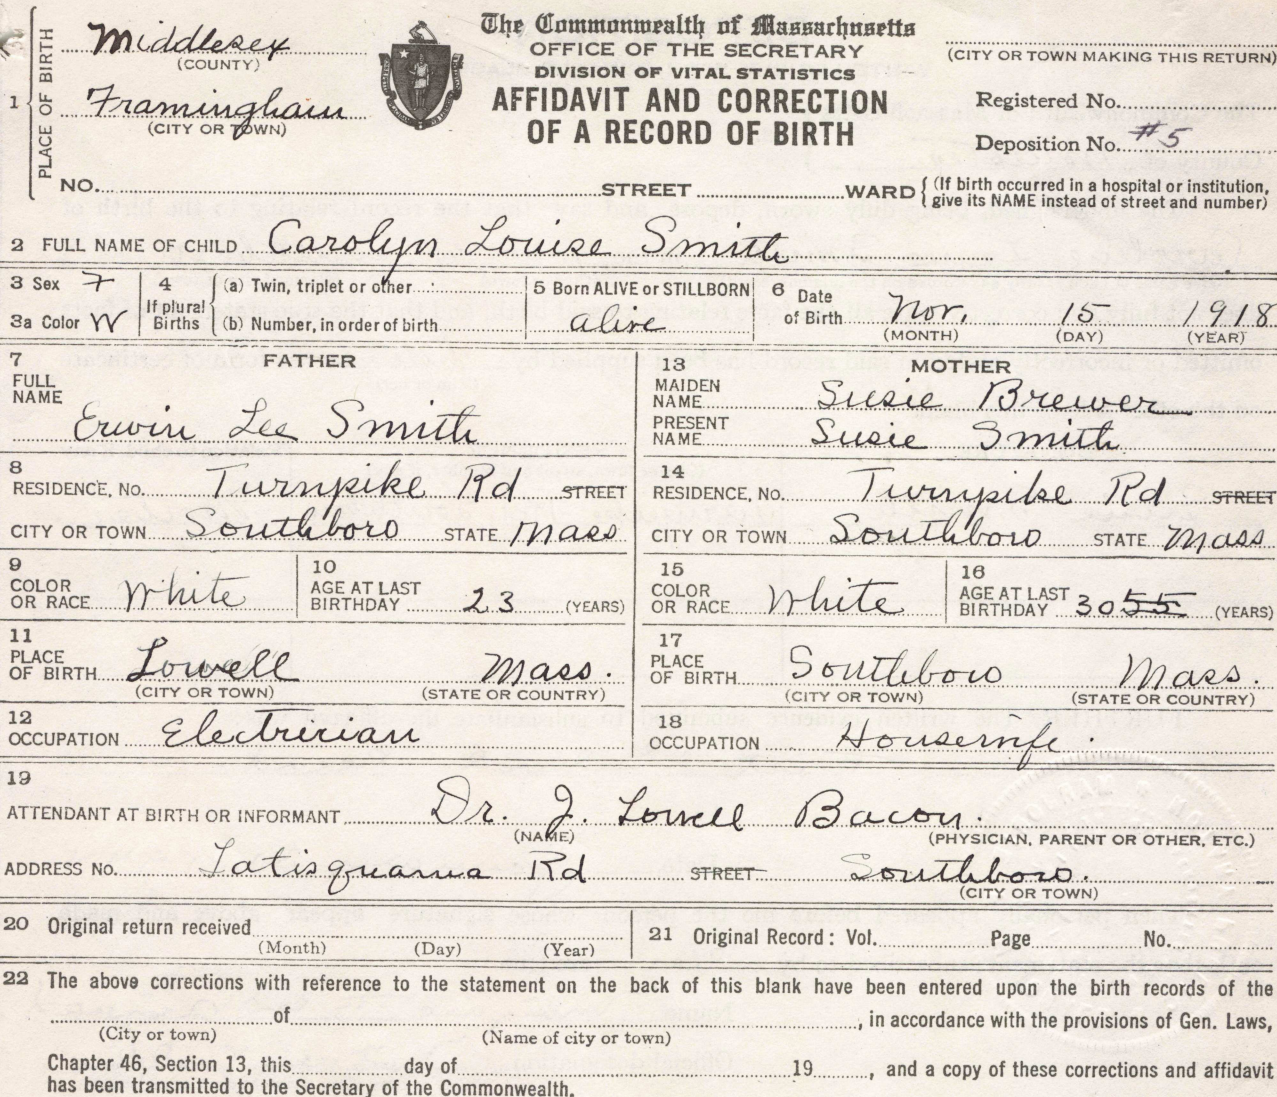 The Commonwealth of Massachusetts
OFFICE OF THE SECRETARY
DIVISION OF VITAL STATISTICS
AFFIDAVIT AND CORRECTION
OF A RECORD OF BIRTH
1 PLACE OF BIRTH
Middlesex
(COUNTY)
Framingham
(CITY OR TOWN)
(CITY OR TOWN MAKING THIS RETURN)
Registered No.
Deposition No. #5
NO. STREET WARD { (If birth occurred in a hospital or institution,
give its NAME instead of street and number)
2 FULL NAME OF CHILD Carolyn Louise Smith
3 Sex F
3a Color W
4 If plural Births { (a) Twin, triplet or other
(b) Number, in order of birth
5 Born ALIVE or STILLBORN
alive
6 Date of Birth Nov. 15 1918
(MONTH) (DAY) (YEAR)
7 FATHER
FULL NAME
Erwin Lee Smith
8
RESIDENCE, No. Turnpike Rd STREET
CITY OR TOWN Southboro STATE Mass
9 COLOR OR RACE White
10 AGE AT LAST BIRTHDAY 23 (YEARS)
11 PLACE OF BIRTH Lowell Mass.
(CITY OR TOWN) (STATE OR COUNTRY)
12 OCCUPATION Electrician
13 MOTHER
MAIDEN NAME Susie Brewer
PRESENT NAME Susie Smith
14
RESIDENCE, No. Turnpike Rd STREET
CITY OR TOWN Southboro STATE Mass
15 COLOR OR RACE White
16 AGE AT LAST BIRTHDAY 30 55 (YEARS)
17 PLACE OF BIRTH Southboro Mass.
(CITY OR TOWN) (STATE OR COUNTRY)
18 OCCUPATION Housewife.
19
ATTENDANT AT BIRTH OR INFORMANT Dr. J. Lowell Bacon.
(NAME) (PHYSICIAN, PARENT OR OTHER, ETC.)
ADDRESS No. Latisquama Rd STREET Southboro.
(CITY OR TOWN)
20 Original return received
(Month) (Day) (Year)
21 Original Record: Vol. Page No.
22 The above corrections with reference to the statement on the back of this blank have been entered upon the birth records of the
of , in accordance with the provisions of Gen. Laws,
(City or town) (Name of city or town)
Chapter 46, Section 13, this day of 19 , and a copy of these corrections and affidavit
has been transmitted to the Secretary of the Commonwealth.